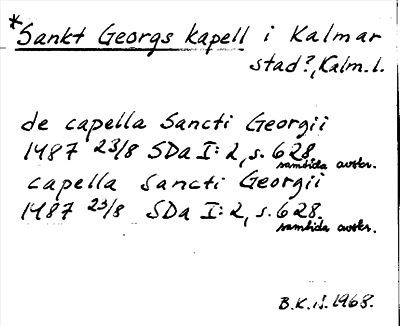 *Sankt Georgs kapell i Kalmar
stad?, Kalm. l.
de capella Sancti Georgii
1487 23/8 SDa I:2, s. 628.
samtida avskr.
capella Sancti Georgii
1487 23/8 SDa I:2, s. 628.
samtida avskr.
B.K. 1968.